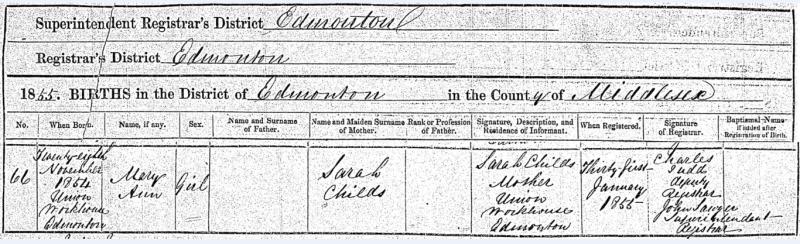 Superintendent Registrar's District Edmonton
Registrar's District Edmonton
1855. BIRTHS in the District of Edmonton in the County of Middlesex
No. When Born. Name, if any. Sex. Name and Surname of Father. Name and Maiden Surname of Mother. Rank or Profession of Father. Signature, Description, and Residence of Informant. When Registered. Signature of Registrar. Baptismal Name if added after Registration of Birth.
66
Twenty eighth
November
1854
Union
Workhouse
Edmonton
Mary
Ann
Girl
Sarah
Childs
Sarah Childs
Mother
Union
Workhouse
Edmonton
Thirty first
January
1855
Charles
Judd
deputy
Registrar
John Sawyer
Superintendant
Registrar